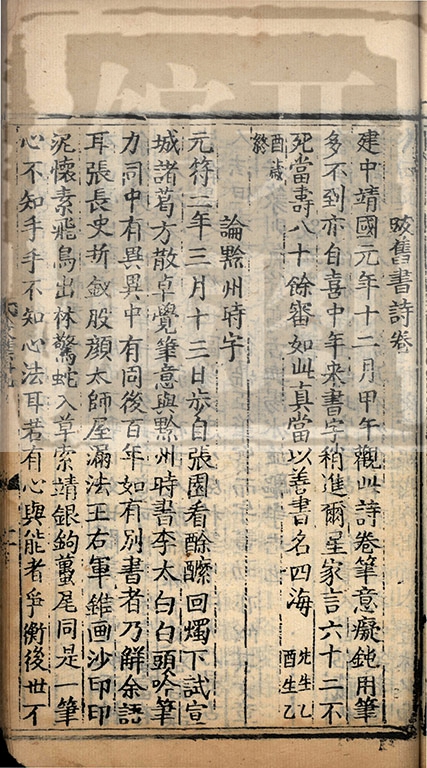 跋舊書詩卷
建中靖國元年十二月甲午觀此詩卷筆意癡鈍用筆
多不到亦自喜中年來書字稍進爾星家言六十二不
死當壽八十餘審如此真當以善書名四海先生乙酉生乙
酉歲終
論黔州時字
元符二年三月十三日步自張園看酴醾回燭下試宣
城諸葛方散卓覺筆意與黔州時書李太白白頭吟筆
力同中有異異中有同後百年如有別書者乃解余語
耳張長史折釵股顏太師屋漏法王右軍錐画沙印印
泥懷素飛鳥出林驚蛇入草索靖銀鉤蠆尾同是一筆
心不知手手不知心法耳若有心與能者爭衡後世不